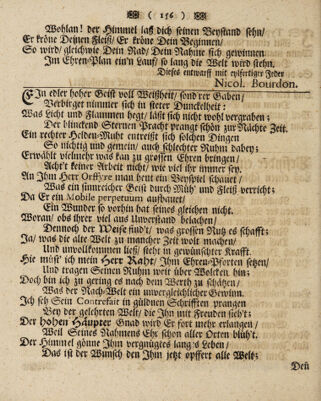 ( 156. )
Wohlan! der Himmel laß dich seinen Beystand sehn/
Er kröne Deinen Fleiß/ Er kröne Dein Beginnen/
So wird/ gleichwie Dein Rad/ Dein Nahme sich gewinnen
Im Ehren-Plan ein'n Lauff/ so lang die Welt wird stehn.
Dieses entwarff mit eylfertiger Feder
Nicol. Bourdon.
Ein edler hoher Geist voll Weißheit/ sondrer Gaben/
Verbirget nimmer sich in steter Dunckelheit:
Was Licht und Flammen hegt/ läßt sich nicht wohl vergraben;
Der blinckend Sternen Pracht prangt schön zur Nächte Zeit.
Ein rechter Helden-Muht entreist sich solchen Dingen
So nichtig und gemein/ auch schlechter Ruhm dabey;
Erwählt vielmehr was kan zu grossen Ehren bringen/
Acht't keiner Arbeit nicht/ wie viel ihr immer sey.
An Ihm Herr Orffyre man heut ein Beyspiel schauet/
Was ein sinnreicher Geist durch Müh' und Fleiß verricht;
Da Er ein Mobile perpetuum aufbauet/
Ein Wunder so vorhin hat seines gleichen nicht.
Woran/ obs ihrer viel aus Unverstand belachen/
Dennoch der Weise find't/ was grossen Nutz es schafft;
Ja/ was die alte Welt zu mancher Zeit wolt machen/
Und unvollkommen ließ/ steht in gewünschter Krafft.
Hie müß' ich mein Herr Raht/ Ihm Ehren-Pforten setzen/
Und tragen Seinen Ruhm weit über Wolcken hin;
Doch bin ich zu gering es nach dem Werth zu schätzen/
Was der Nach-Welt ein unvergleichlicher Gewinn.
Ich seh Sein Contrefait in güldnen Schrifften prangen
Bey der gelehrten Welt/ die Ihn mit Freuden sieh't;
Der hohen Häupter Gnad wird Er fort mehr erlangen/
Weil Seines Nahmens Ehr schon aller Orten blüh't.
Der Himmel gönne Ihm vergnügtes lang's Leben/
Das ist der Wunsch den Ihm jetzt opffert alle Welt;
Deñ